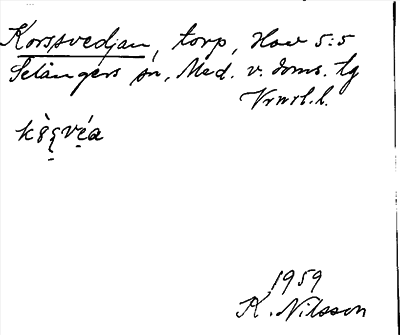 Korssvedjan, torp, Hov 5:5
Selångers sn, Med. v. doms. tg
Vrnrl.l.
1959
K. Nilsson